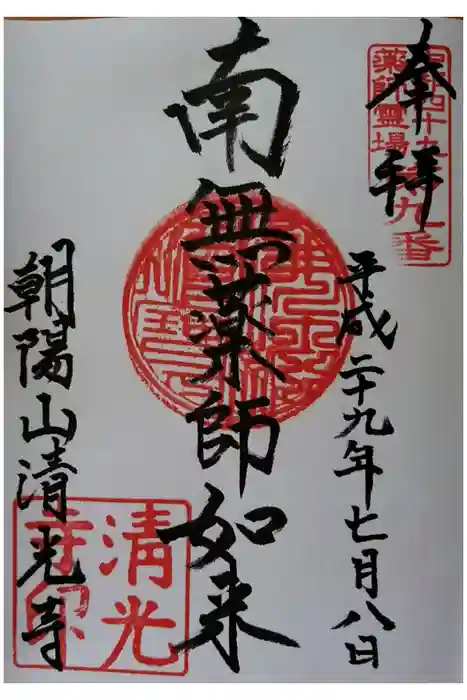 奉拝
薬師霊場
第九番
平成二十九年七月八日
南無薬師如来
朝陽山清光寺
清光
寺印